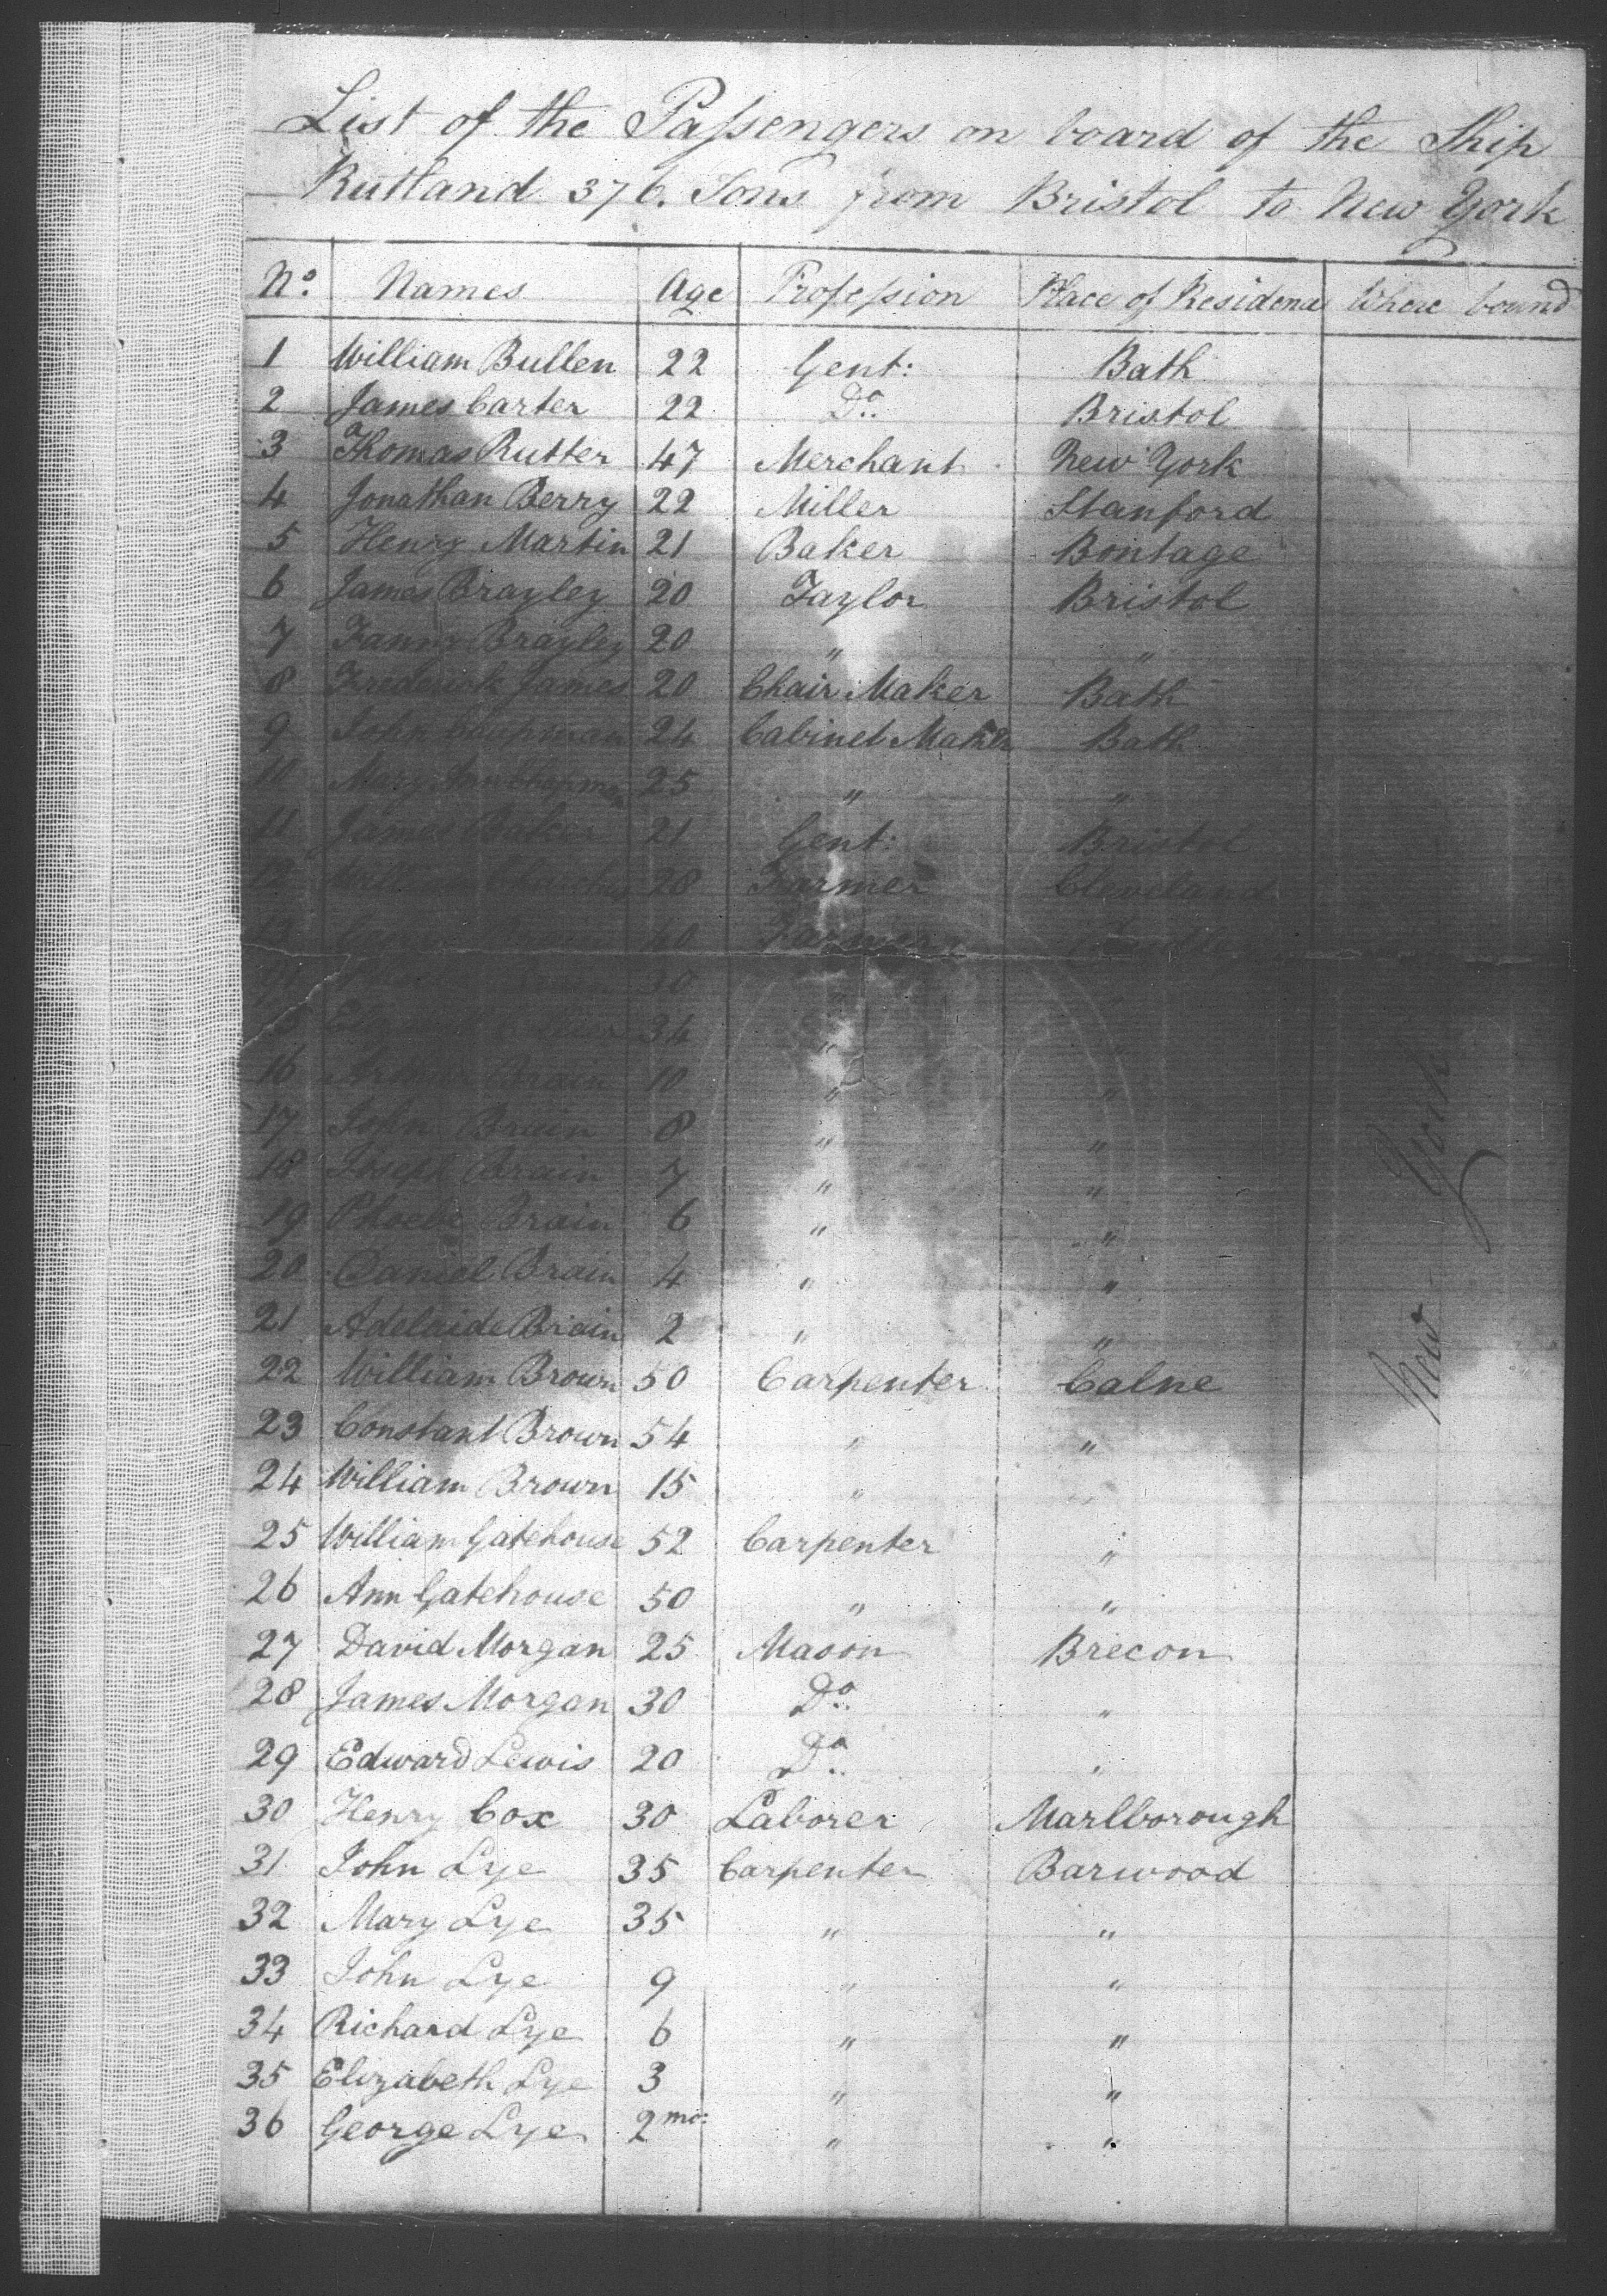 List of the Passengers on board of the Ship
Rutland 376. Tons from Bristol to New York
No. Names Age Profession Place of Residence Where bound
1 William Bullen 22 Gent: Bath
2 James Carter 22 Do. Bristol
3 Thomas Rutter 47 Merchant New York
4 Jonathan Berry 22 Miller Stanford
5 Henry Martin 21 Baker Bontage
6 James Brayley 20 Taylor Bristol
7 Fanny Brayley 20 " "
8 Frederick James 20 Chair Maker Bath
9 John Chapman 24 Cabinet Maker Bath
10 Mary Ann Chapman 25 " "
11 James Baker 21 Gent: Bristol
12 William 28 Farmer Cleveland
13 40 Farmer
30 "
34 "
16 Brain 10 " "
17 John Brain 8 " "
18 Joseph Brain 7 " "
19 Phoebe Brain 6 " "
20 Daniel Brain 4 " "
21 Adelaide Brain 2 " "
22 William Brown 50 Carpenter Calne
23 Constant Brown 54 " "
24 William Brown 15 "
25 William Gatehouse 52 Carpenter "
26 Ann Gatehouse 50 " "
27 David Morgan 25 Mason Brecon
28 James Morgan 30 Do. "
29 Edward Lewis 20 Do. "
30 Henry Cox 30 Laborer Marlborough
31 John Lye 35 Carpenter Barwood
32 Mary Lye 35 " "
33 John Lye 9 " "
34 Richard Lye 6 " "
35 Elizabeth Lye 3 " "
36 George Lye 2 mo: " "
New York